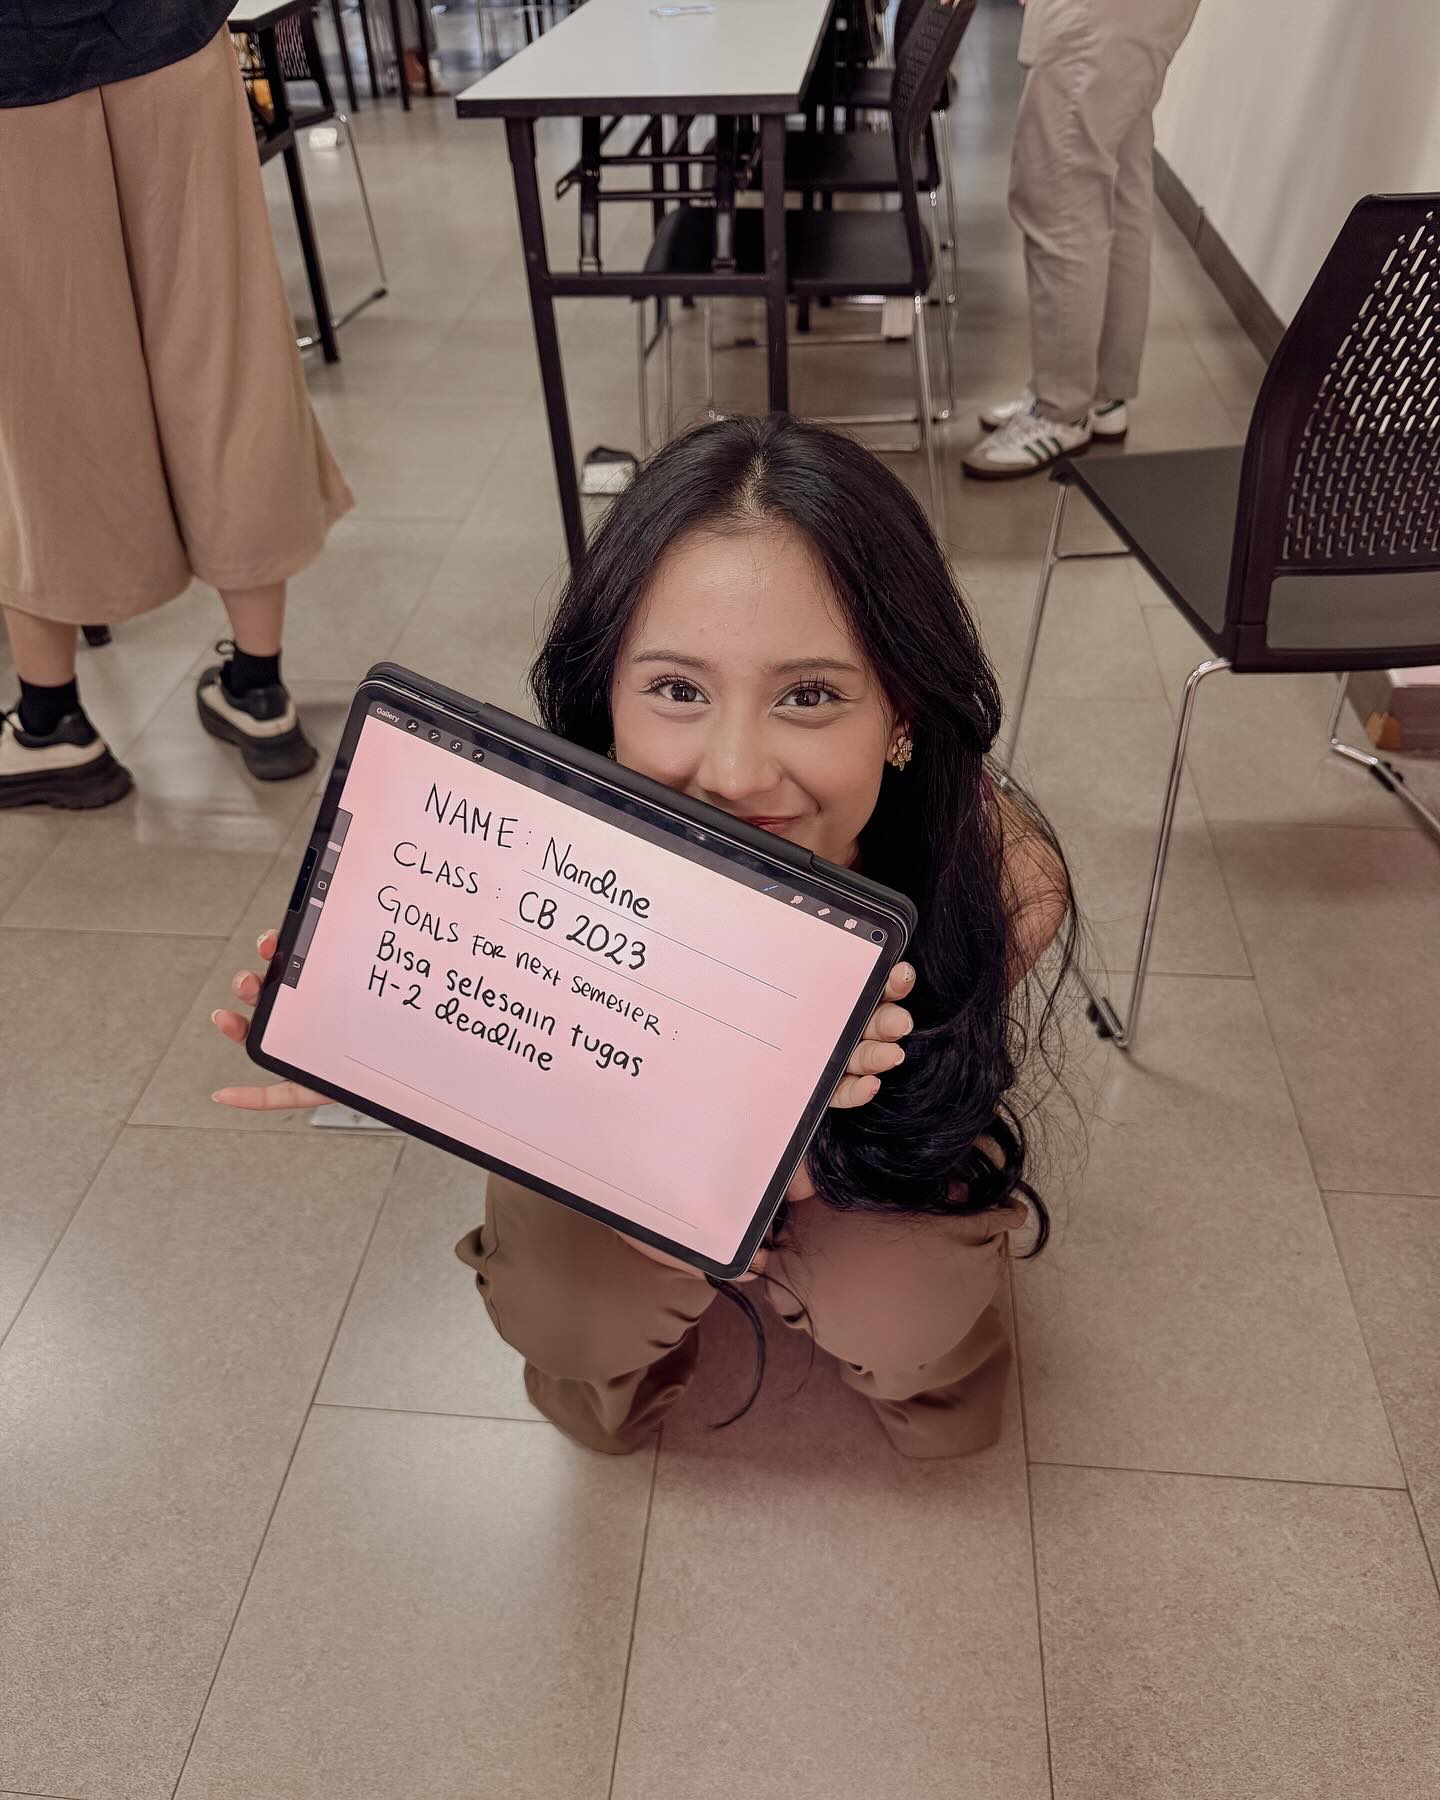 Gallery
NAME: Nandine
CLASS: CB 2023
GOALS FOR next semester:
Bisa selesaiin tugas
H-2 deadline